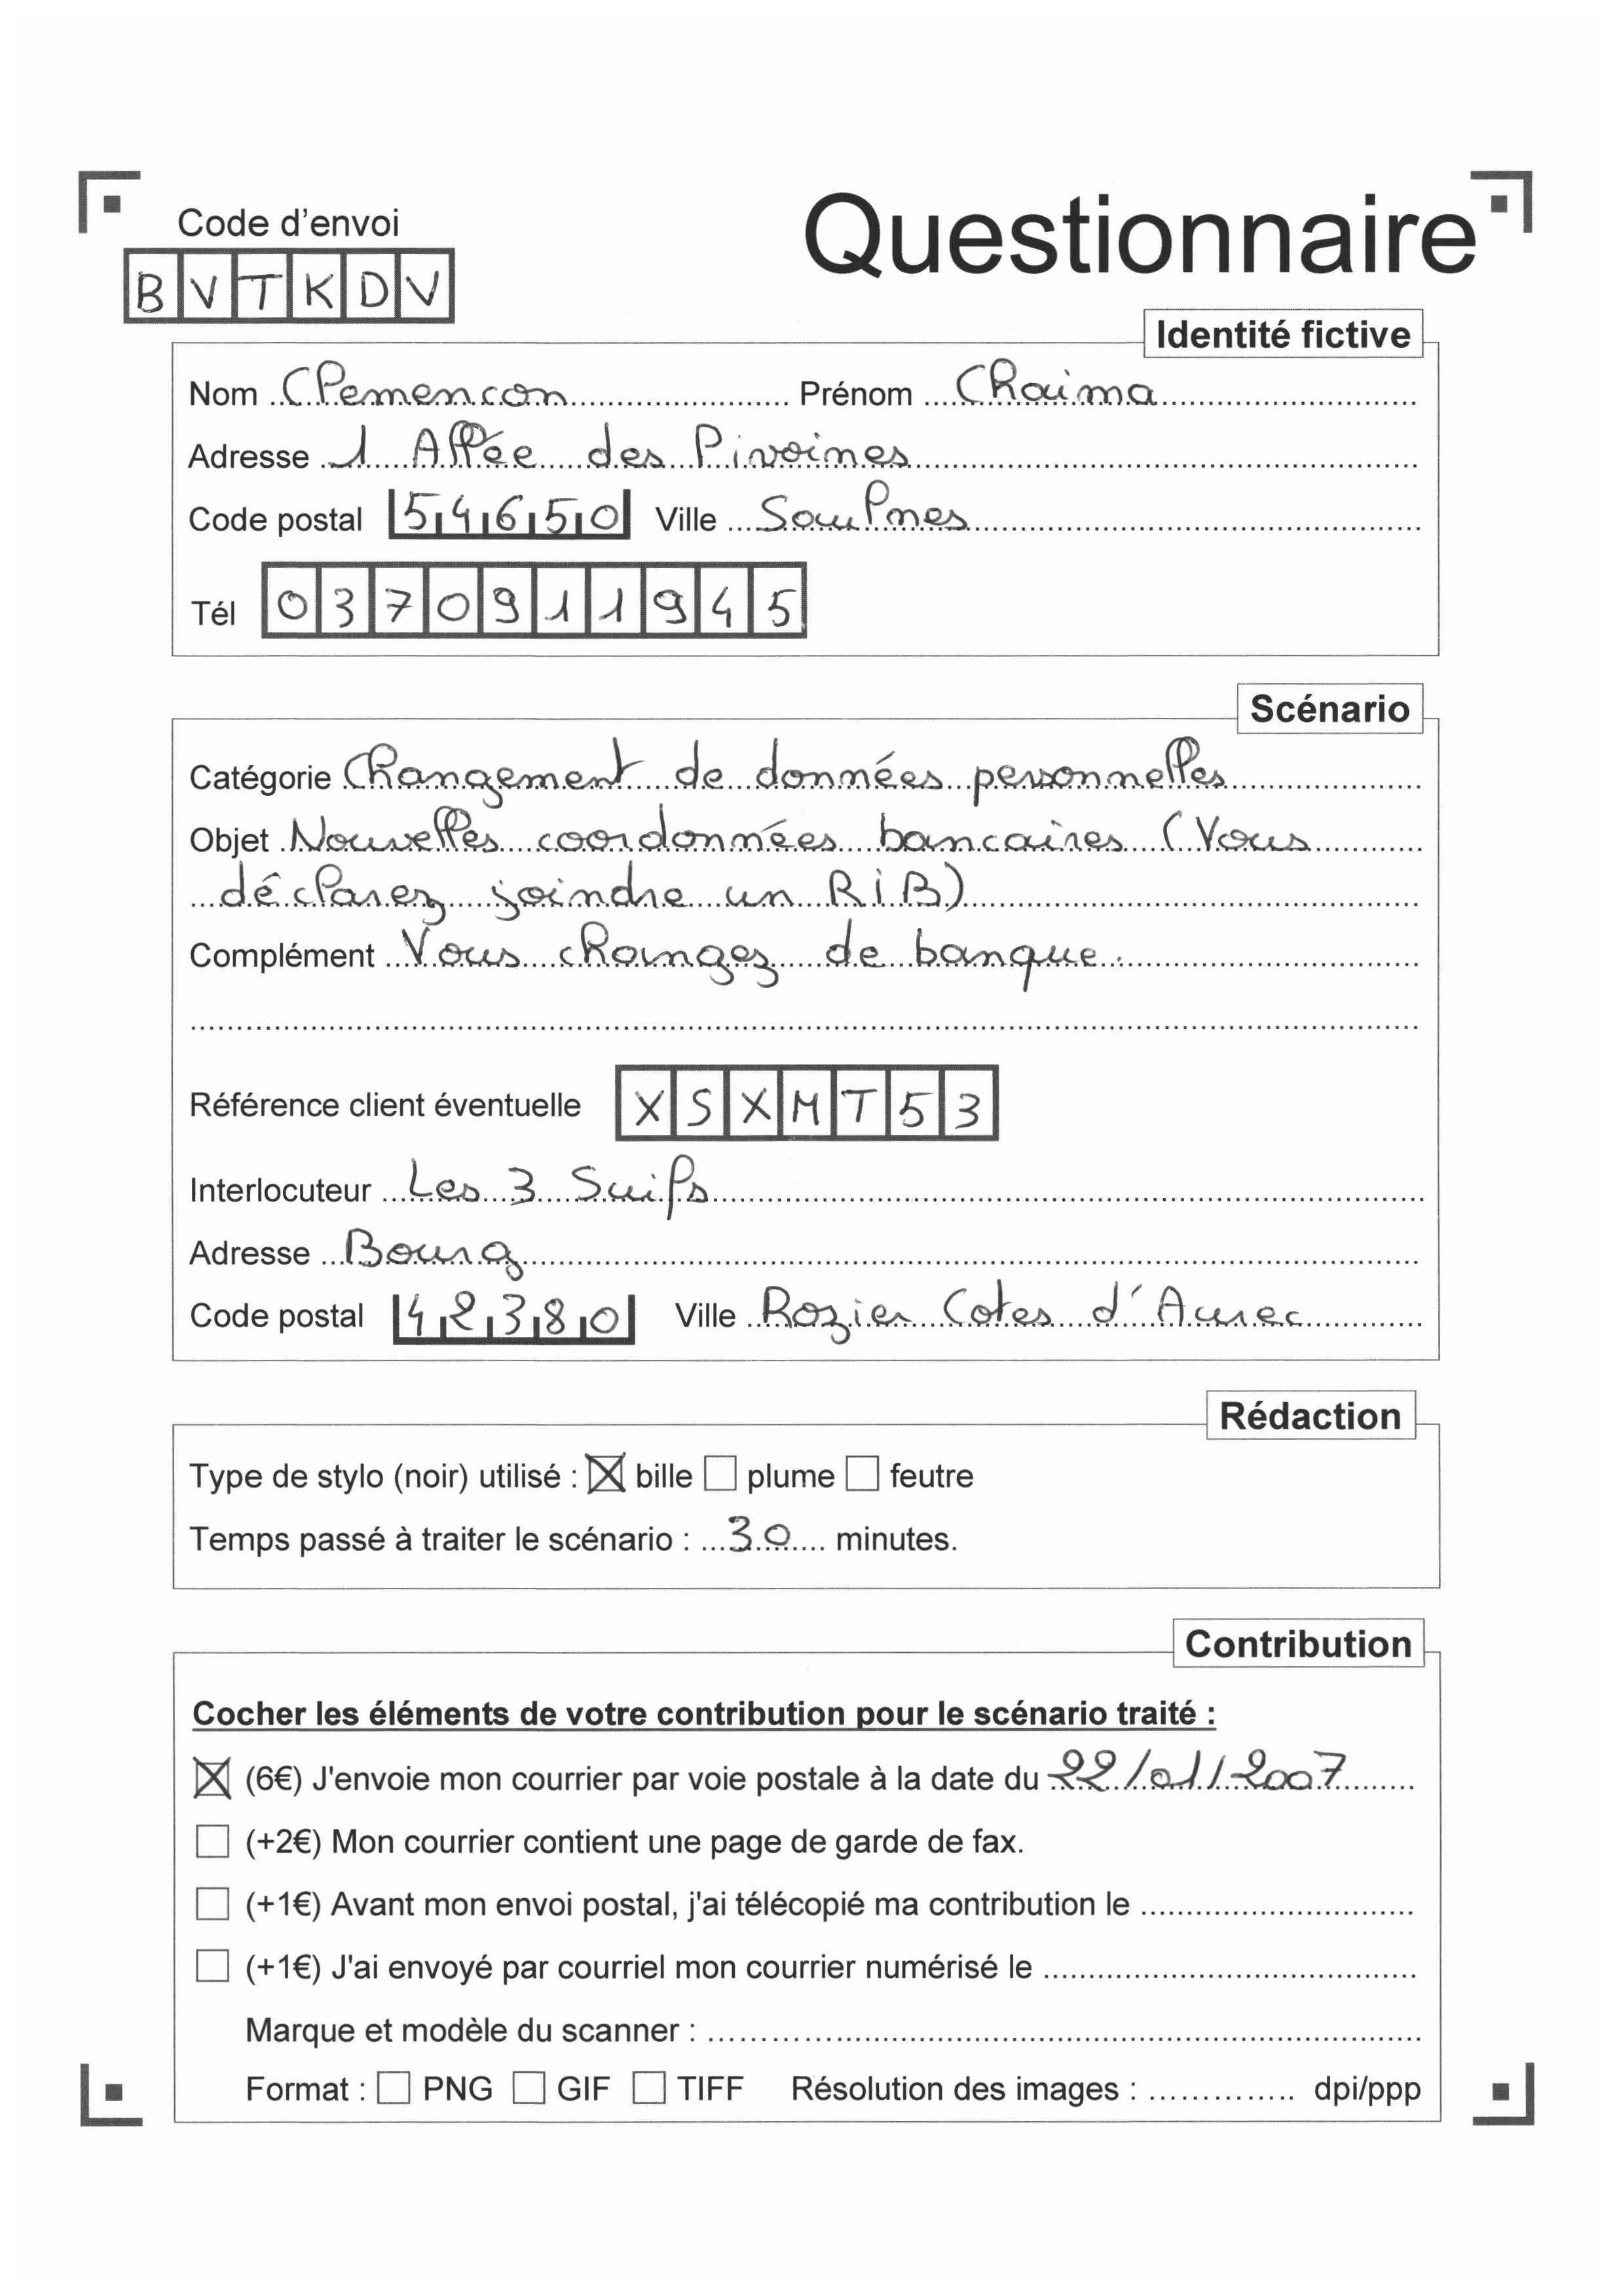 Code d'envoi
Questionnaire
BVTKDV
Identité fictive
Nom Clemencon Prénom Chaima
Adresse 1 Allée des Pivoines
Code postal 54650 Ville Saulnes
Tél 0370911945
Scénario
Catégorie Changement de données personnelles
Objet Nouvelles coordonnées bancaires (Vous
déclarez joindre un RIB)
Complément Vous changez de banque.
Référence client éventuelle XSXMT53
Interlocuteur Les 3 Suifs
Adresse Bourg
Code postal 42380 Ville Rozier Cotes d'Aurec
Rédaction
Type de stylo (noir) utilisé : ☒ bille ☐ plume ☐ feutre
Temps passé à traiter le scénario : 30 minutes.
Contribution
Cocher les éléments de votre contribution pour le scénario traité :
☒ (6€) J'envoie mon courrier par voie postale à la date du 22/01/2007
☐ (+2€) Mon courrier contient une page de garde de fax.
☐ (+1€) Avant mon envoi postal, j'ai télécopié ma contribution le
☐ (+1€) J'ai envoyé par courriel mon courrier numérisé le
Marque et modèle du scanner :
Format : ☐ PNG ☐ GIF ☐ TIFF Résolution des images : dpi/ppp